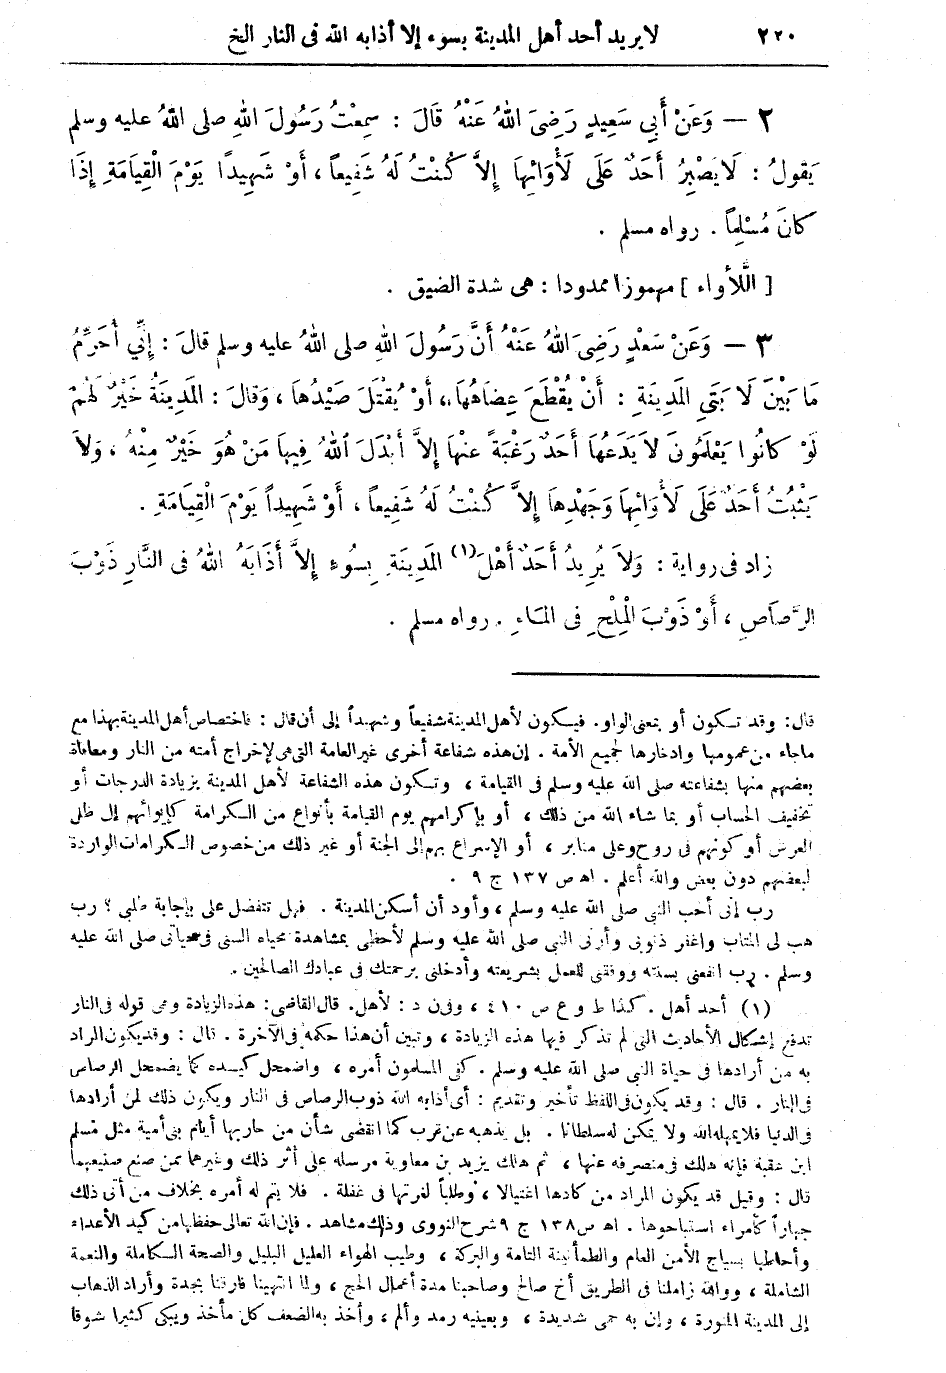 ٢٢٠ لا يريد أحد أهل المدينة بسوء إلا أذابه الله فى النار الخ
٢ — وَعَنْ أَبِي سَعِيدٍ رَضِيَ اللهُ عَنْهُ قَالَ : سَمِعْتُ رَسُولَ اللهِ صلى اللهُ عليه وسلم
يَقُولُ : لَا يَصْبِرُ أَحَدٌ عَلَى لَأْوَائِهَا إِلاَّ كُنْتُ لَهُ شَفِيعاً ، أَوْ شَهِيدًا يَوْمَ الْقِيَامَةِ إِذَا
كَانَ مُسْلِماً . رواه مسلم .
[ اللَّأواء ] مهموزا ممدودا : هى شدة الضيق .
٣ — وَعَنْ سَعْدٍ رَضِيَ اللهُ عَنْهُ أَنَّ رَسُولَ اللهِ صلى اللهُ عليه وسلم قَالَ : إِنِّي أُحَرِّمُ
مَا بَيْنَ لَا بَتَيِ الْمَدِينَةِ : أَنْ يُقْطَعَ عِضَاهُهَا ، أَوْ يُقْتَلَ صَيْدُهَا ، وَقَالَ : الْمَدِينَةُ خَيْرٌ لَهُمْ
لَوْ كَانُوا يَعْلَمُونَ لَا يَدَعُهَا أَحَدٌ رَغْبَةً عَنْهَا إِلاَّ أَبْدَلَ اللهُ فِيهَا مَنْ هُوَ خَيْرٌ مِنْهُ ، وَلاَ
يَثْبُتُ أَحَدٌ عَلَى لَأْوَائِهَا وَجَهْدِهَا إِلاَّ كُنْتُ لَهُ شَفِيعاً ، أَوْ شَهِيداً يَوْمَ الْقِيَامَةِ .
زاد فى رواية : وَلاَ يُرِيدُ أَحَدٌ أَهْلَ (١) الْمَدِينَةِ بِسُوءٍ إِلاَّ أَذَابَهُ اللهُ فى النَّارِ ذَوْبَ
الرَّصَاصِ ، أَوْ ذَوْبَ الْمِلْحِ فى الْمَاءِ . رواه مسلم .
قال : وقد تكون أو بمعنى الواو . فيكون لأهل المدينة شفيعاً وشهيداً إلى أن قال : فاختصاص أهل المدينة بهذا مع
ماجاء من عمومها وادخارها لجميع الأمة . إن هذه شفاعة أخرى غير العامة التى هى لإخراج أمته من النار ومعافاة
بعضهم منها بشفاعته صلى الله عليه وسلم فى القيامة ، وتكون هذه الشفاعة لأهل المدينة بزيادة الدرجات أو
تخفيف الحساب أو بما شاء الله من ذلك ، أو بإكرامهم يوم القيامة بأنواع من الكرامة كإيوائهم إلى ظل
العرش أو كونهم فى روح وعلى منابر ، أو الإسراع بهم إلى الجنة أو غير ذلك من خصوص الكرامات الواردة
لبعضهم دون بعض والله أعلم . اهـ ص ١٣٧ ج ٩ .
رب إنى أحب النبى صلى الله عليه وسلم ، وأود أن أسكن المدينة . فهل تتفضل على بإجابة طلبى ؟ رب
هب لى المتاب واغفر ذنوبى وأرنى النبى صلى الله عليه وسلم لأحظى بمشاهدة محياه السنى فى حياتى صلى الله عليه
وسلم . رب انفعنى بسنته ووفقنى للعمل بشريعته وأدخلنى برحمتك فى عبادك الصالحين .
(١) أحد أهل . كذا ط و ع ص ٤١٠ ، وفى ن د : لأهل . قال القاضى : هذه الزيادة وهى قوله فى النار
تدفع إشكال الأحاديث التى لم تذكر فيها هذه الزيادة ، وتبين أن هذا حكمه فى الآخرة . قال : وقد يكون المراد
به من أرادها فى حياة النبى صلى الله عليه وسلم . كفى المسلمون أمره ، واضمحل كيده كما يضمحل الرصاص
فى النار . قال : وقد يكون فى اللفظ تأخير وتقديم : أى أذابه الله ذوب الرصاص فى النار ويكون ذلك لمن أرادها
فى الدنيا فلا يمهله الله ولا يمكن له سلطانا . بل يذهبه عن قرب كما انقضى شأن من حاربها أيام بنى أمية مثل مسلم
ابن عقبة فإنه هلك فى منصرفه عنها ، ثم هلك يزيد بن معاوية مرسله على أثر ذلك وغيرهما ممن صنع صنيعهما
قال : وقيل قد يكون المراد من كادها اغتيالا ، وطلباً لغرتها فى غفلة . فلا يتم له أمره بخلاف من أتى ذلك
جهاراً كأمراء استباحوها . اهـ ص ١٣٨ ج ٩ شرح النووى وذلك مشاهد . فإن الله تعالى حفظها من كيد الأعداء
وأحاطها بسياج الأمن العام والطمأنينة التامة والبركة ، وطيب الهواء العليل البليل والصحة الكاملة والنعمة
الشاملة ، ووالله زاملنا فى الطريق أخ صالح وصاحبنا مدة أعمال الحج ، ولما انتهينا فارقنا بجدة وأراد الذهاب
إلى المدينة المنورة ، وإن به حمى شديدة ، وبعينيه رمد وألم ، وأخذ به الضعف كل مأخذ ويبكى كثيرا شوقا